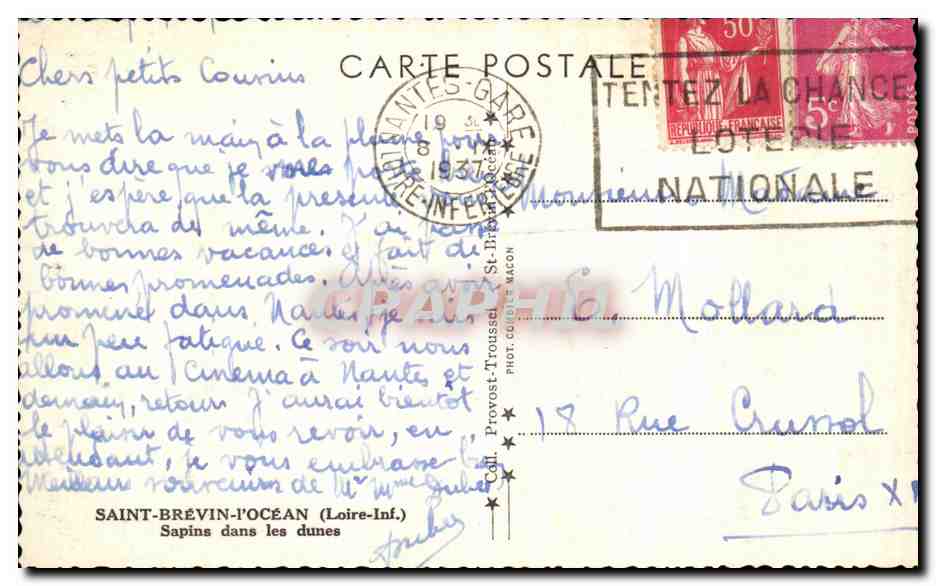 CARTE POSTALE
50c
RÉPUBLIQUE FRANÇAISE
5c
POSTES
NANTES-GARE
19
8
1937
LOIRE-INFÉRIEURE
TENTEZ LA CHANCE
LOTERIE
NATIONALE
Chers petits Cousins
Je mets la main à la plume pour
vous dire que je
et j'espère que la présente vous
trouvera de même. J'ai
de bonnes vacances et fait de
bonnes promenades. Après avoir
promené dans Nantes, je suis
un peu fatigué. Ce soir nous
allons au Cinéma à Nantes et
demain, retour J'aurai bientôt
le plaisir de vous revoir, en
attendant, je vous embrasse
Meilleurs souvenirs de Mr Mme
SAINT-BRÉVIN-l'OCÉAN (Loire-Inf.)
Sapins dans les dunes
Coll. Provost-Troussel St-Brévin-l'Océan
PHOT. COMBIER MACON
CPAPHIL
Monsieur Madame
Mollard
18 Rue Crussol
Paris